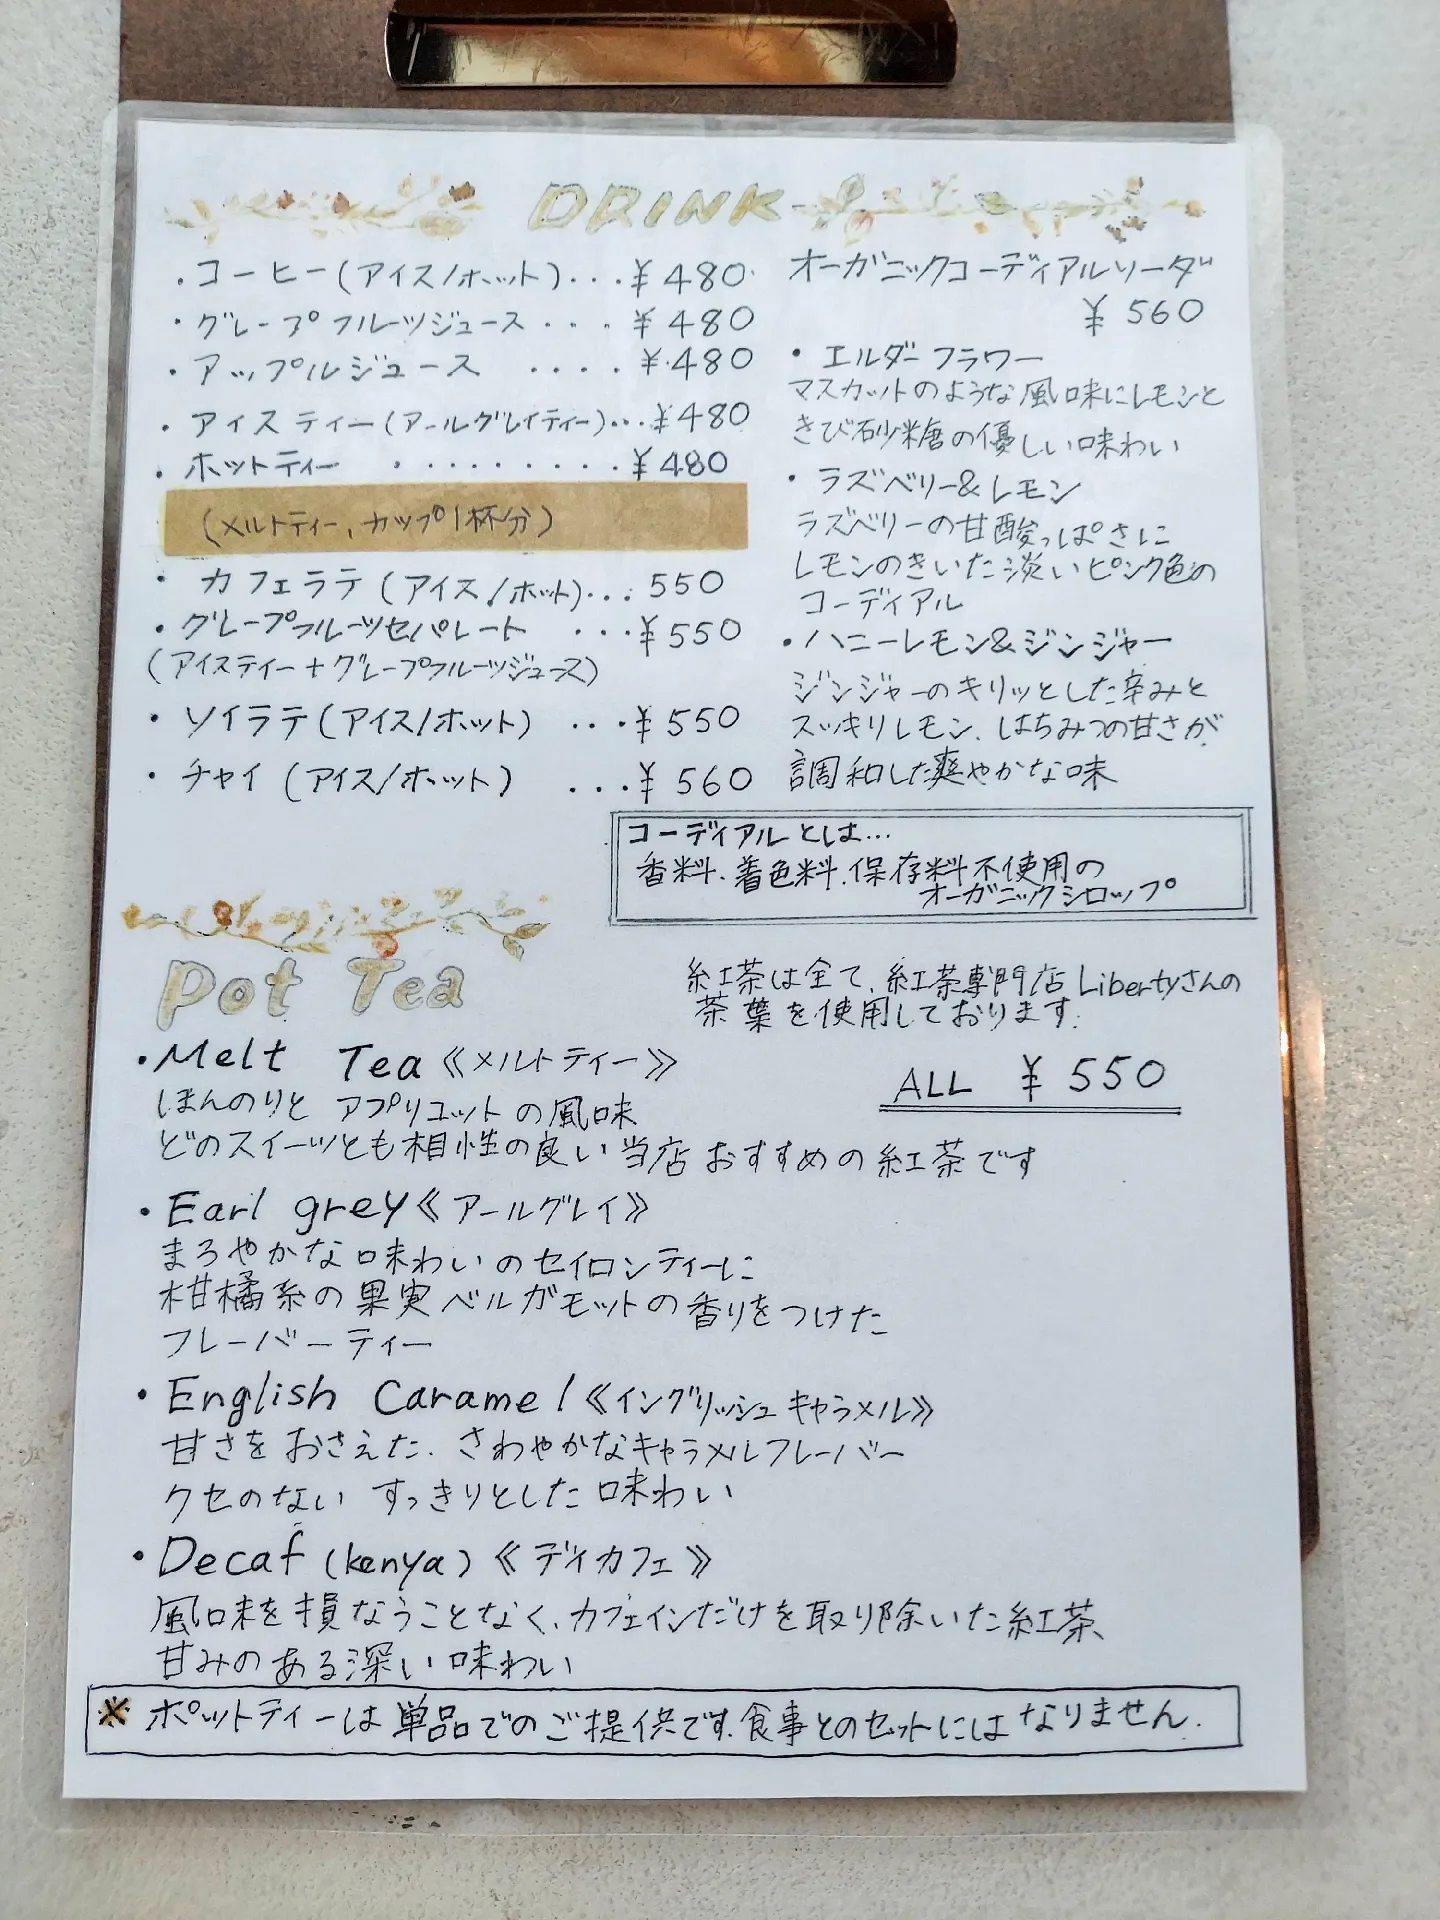 DRINK
・コーヒー(アイス/ホット)...¥480
・グレープフルーツジュース....¥480
・アップルジュース....¥480
・アイスティー(アールグレイティー)...¥480
・ホットティー.........¥480
(メルトティー,カップ1杯分)
・カフェラテ(アイス/ホット)...550
・グレープフルーツセパレート...¥550
(アイスティー+グレープフルーツジュース)
・ソイラテ(アイス/ホット)...¥550
・チャイ(アイス/ホット)...¥560
オーガニックコーディアルソーダ
¥560
・エルダーフラワー
マスカットのような風味にレモンと
きび砂糖の優しい味わい
・ラズベリー&レモン
ラズベリーの甘酸っぱさに
レモンのきいた淡いピンク色の
コーディアル
・ハニーレモン&ジンジャー
ジンジャーのキリッとした辛みと
スッキリレモン、はちみつの甘さが
調和した爽やかな味
コーディアルとは...
香料、着色料、保存料不使用の
オーガニックシロップ
Pot Tea
紅茶は全て、紅茶専門店Libertyさんの
茶葉を使用しております。
ALL ¥550
・Melt Tea《メルトティー》
ほんのりとアプリコットの風味
どのスイーツとも相性の良い当店おすすめの紅茶です
・Earl grey《アールグレイ》
まろやかな味わいのセイロンティーに
柑橘系の果実ベルガモットの香りをつけた
フレーバーティー
・English Caramel《イングリッシュキャラメル》
甘さをおさえた、さわやかなキャラメルフレーバー
クセのないすっきりとした味わい
・Decaf(kenya)《ディカフェ》
風味を損なうことなく、カフェインだけを取り除いた紅茶、
甘みのある深い味わい
※ポットティーは単品でのご提供です。食事とのセットにはなりません。